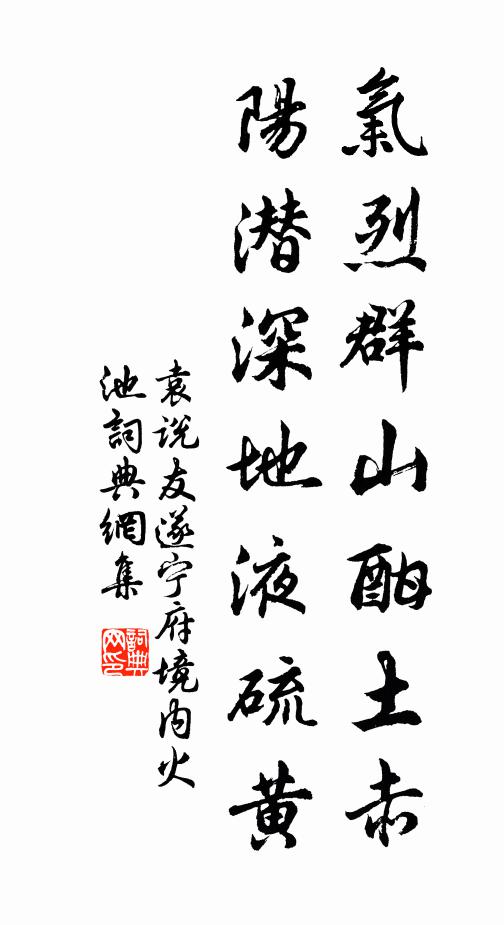 氣烈群山酣土赤
陽潛深地液硫黃
袁说友遂宁府境内火
池詞典網集
詞典
网印